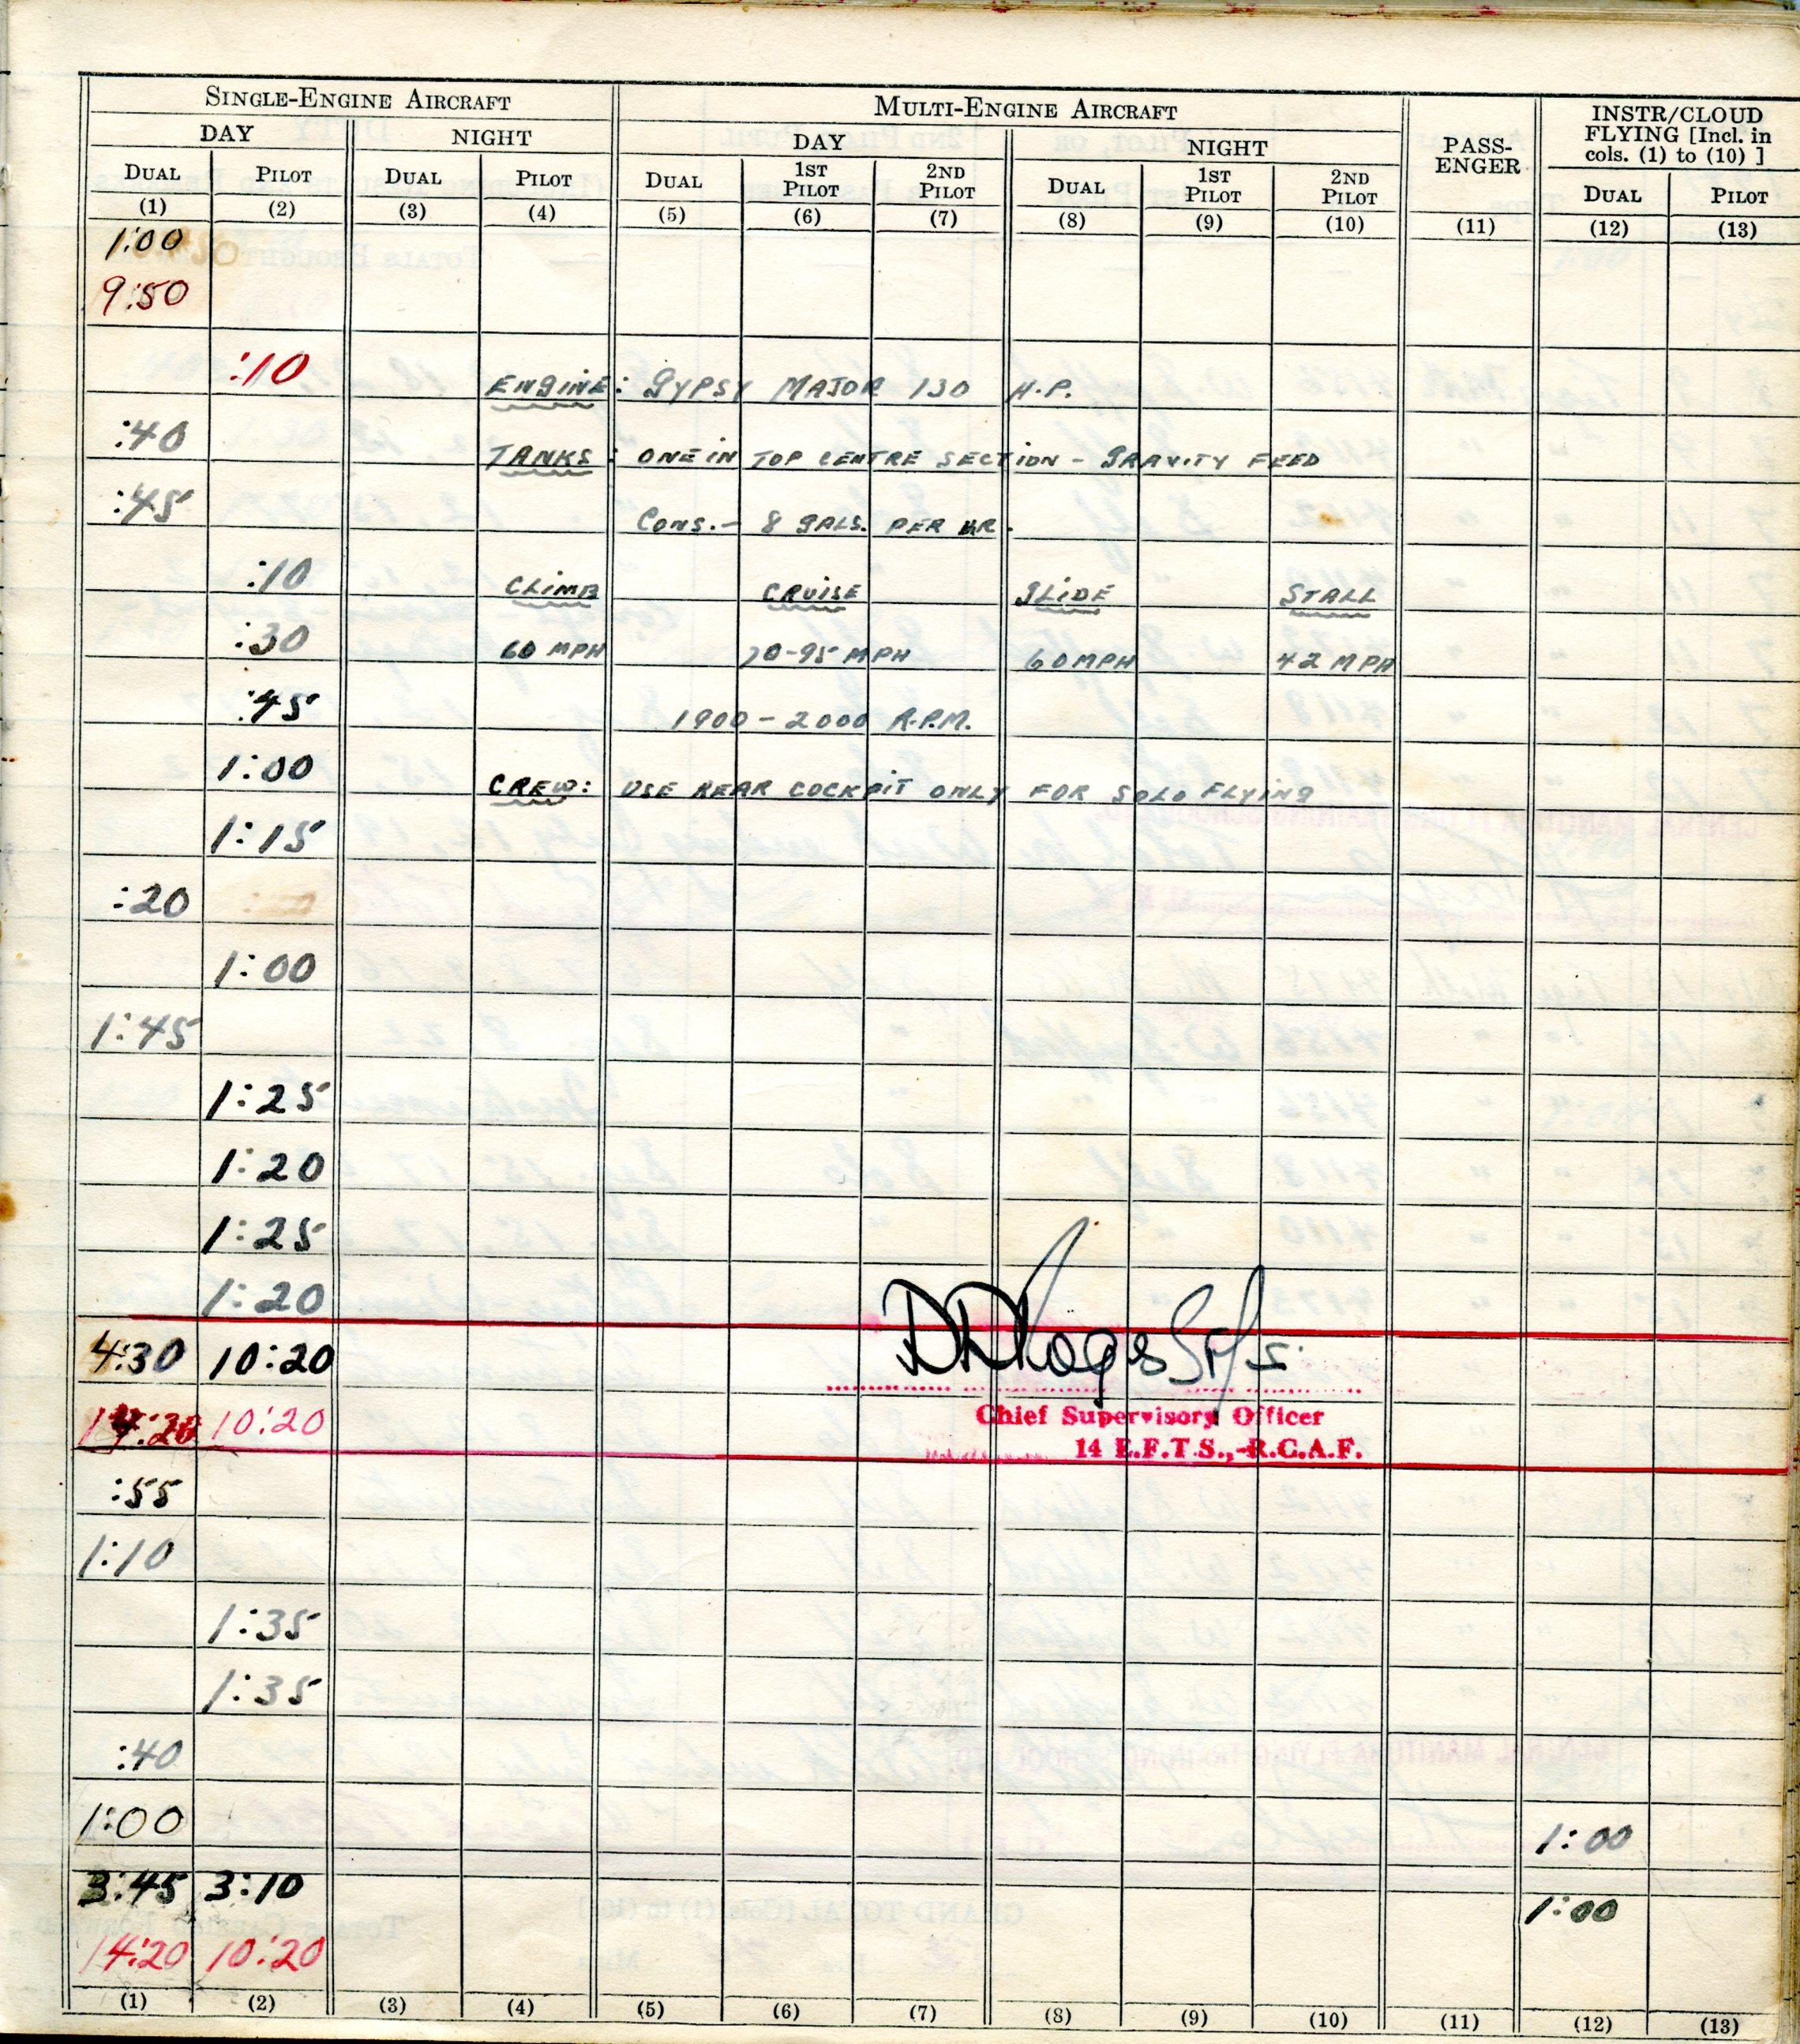 SINGLE-ENGINE AIRCRAFT MULTI-ENGINE AIRCRAFT PASS-ENGER INSTR/CLOUD FLYING [Incl. in cols. (1) to (10) ]
DAY NIGHT DAY NIGHT
DUAL PILOT DUAL PILOT DUAL 1ST PILOT 2ND PILOT DUAL 1ST PILOT 2ND PILOT DUAL PILOT
(1) (2) (3) (4) (5) (6) (7) (8) (9) (10) (11) (12) (13)
1:00
9:50
:10 ENGINE: GYPSY MAJOR 130 H.P.
:40 TANKS: ONE IN TOP CENTRE SECTION - GRAVITY FEED
:45 CONS. - 8 GALS. PER HR.
:10 CLIMB CRUISE GLIDE STALL
:30 60 MPH 70-95 MPH 60 MPH 42 MPH
:45 1900 - 2000 R.P.M.
1:00 CREW: USE REAR COCKPIT ONLY FOR SOLO FLYING
1:15
:20
1:00
1:45
1:25
1:20
1:25
1:20
4:30 10:20
14:20 10:20 Chief Supervisory Officer
14 E.F.T.S.,-R.C.A.F.
:55
1:10
1:35
1:35
:40
1:00 1:00
3:45 3:10 1:00
14:20 10:20
(1) (2) (3) (4) (5) (6) (7) (8) (9) (10) (11) (12) (13)